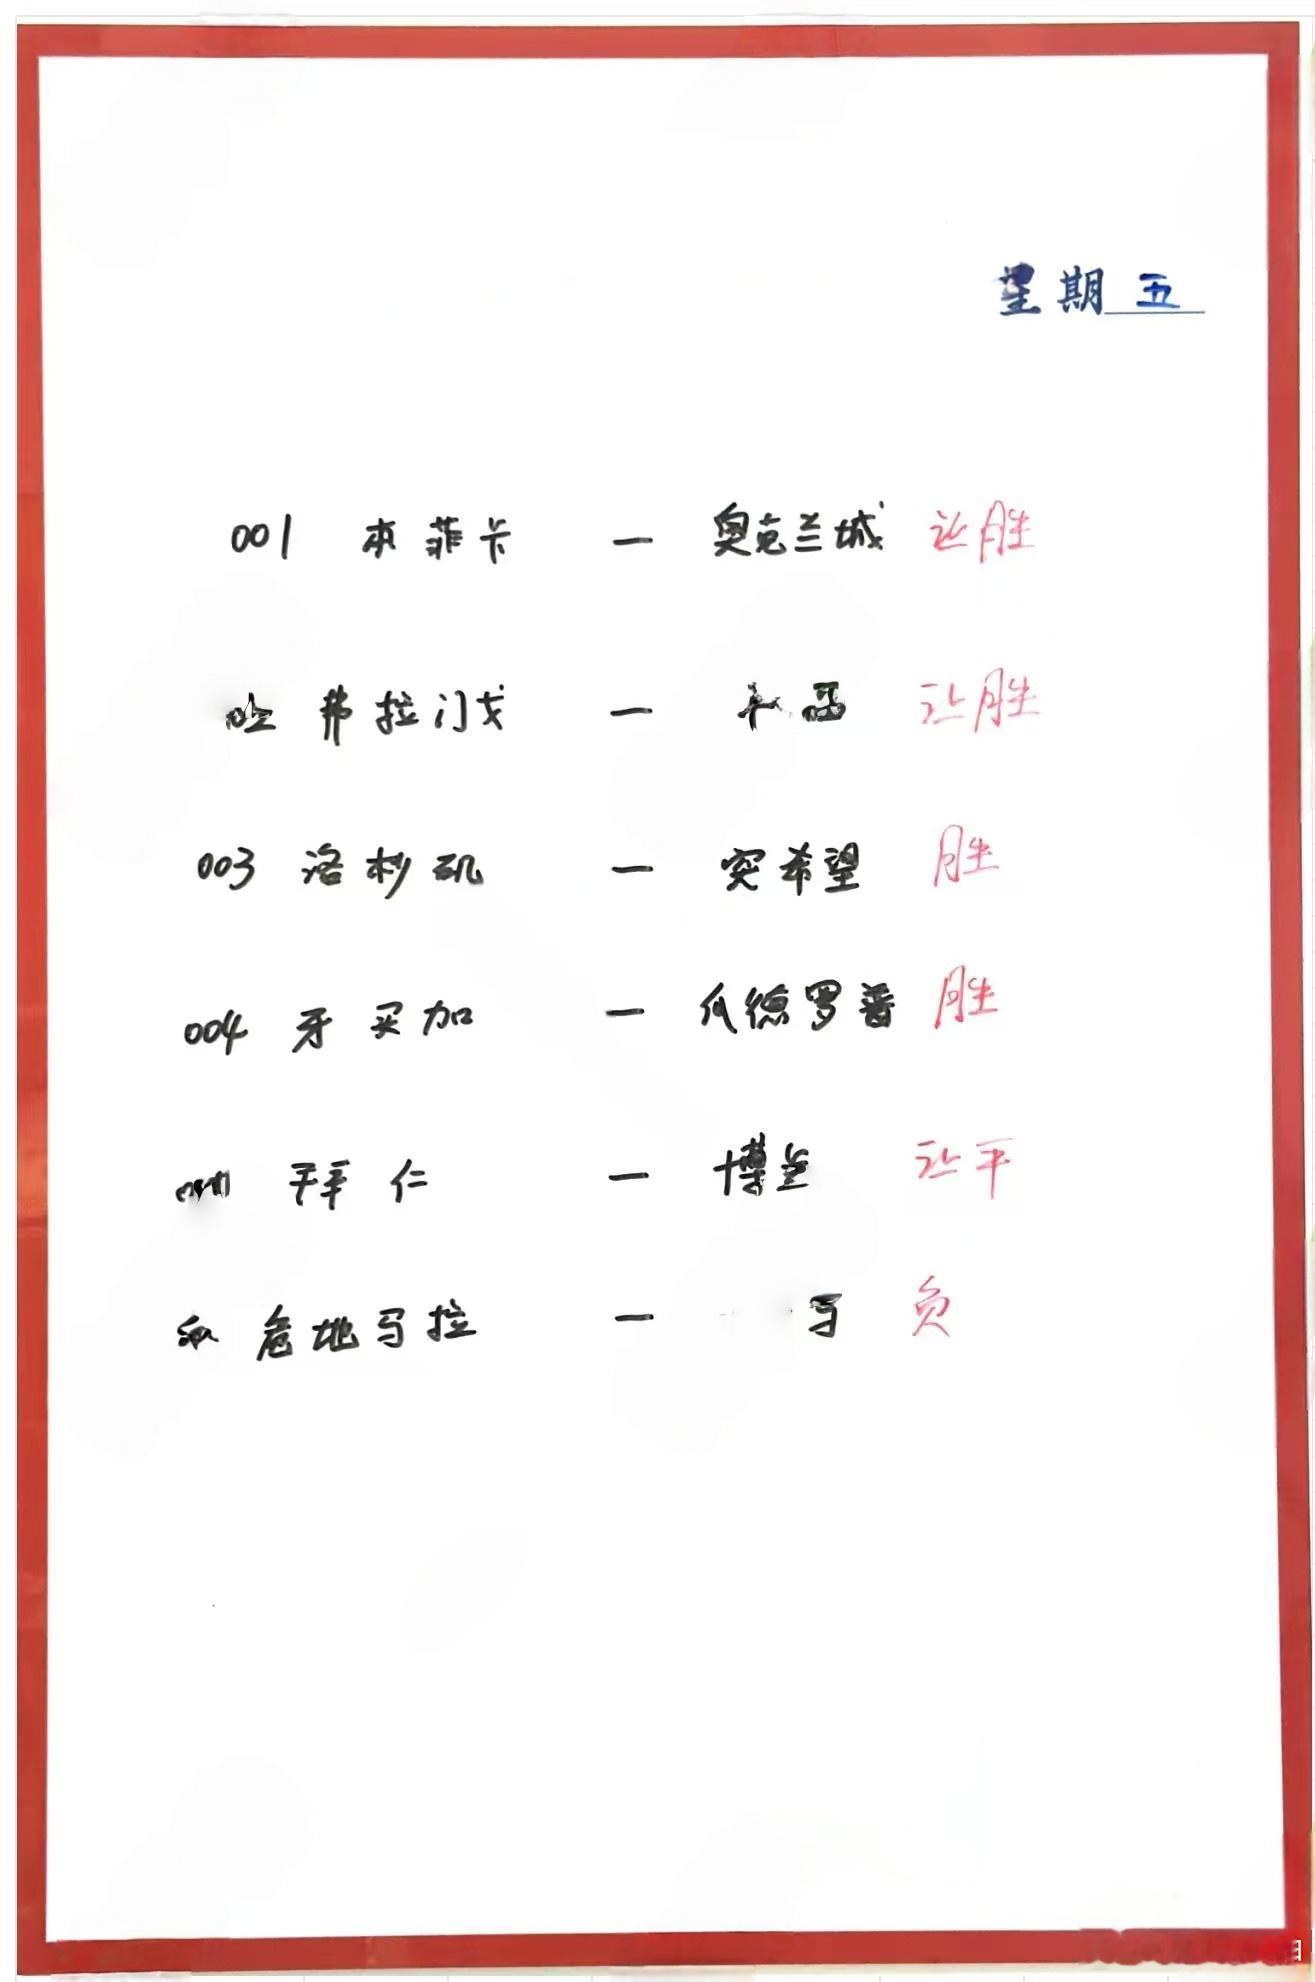 星期五
001 本菲卡 — 奥克兰城 让胜
弗拉门戈 — 让胜
003 洛杉矶 — 突希望 胜
004 牙买加 — 瓜德罗普 胜
拜仁 — 博 让平
危地马拉 — 负